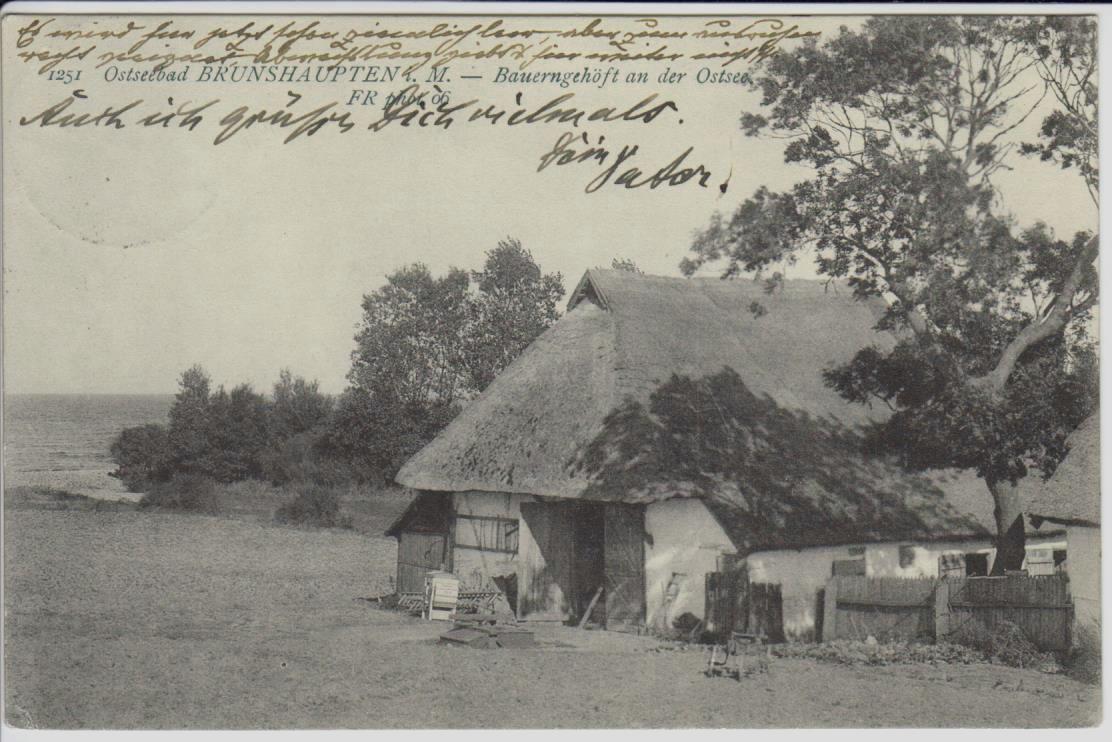 Es wird hier jetzt schon ziemlich leer, aber zum ausruhen
recht viel Abwechslung giebt's hier weiter nicht
1251 Ostseebad BRUNSHAUPTEN i. M. — Bauerngehöft an der Ostsee
FR phot. 06
Auch ich grüße Dich vielmals.
Dein
Vater.